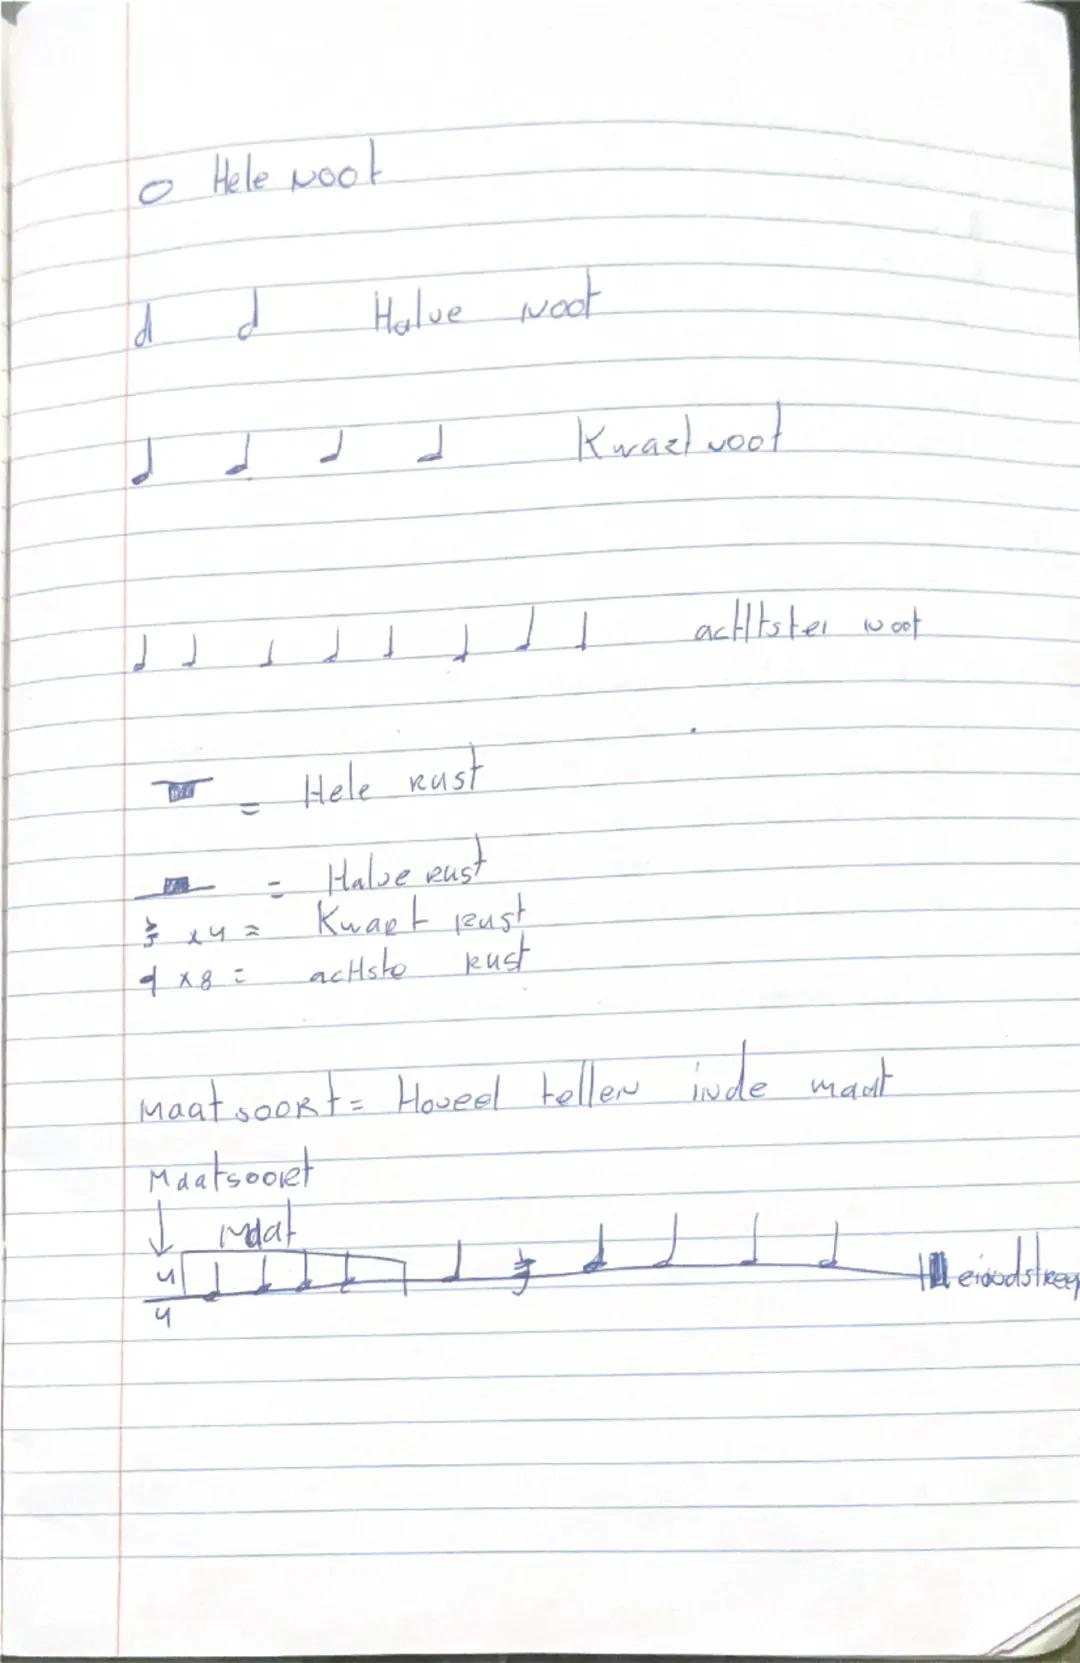 Hele Noot
Halve Noot
Kwart noot
achtster noot
= Hele Rust
= Halve Rust
x4 = Kwart Rust
x8 = achste Rust
Maatsoort = Hoveel tellen in de maat
Maatsoort
maat
4
4
eindstreep